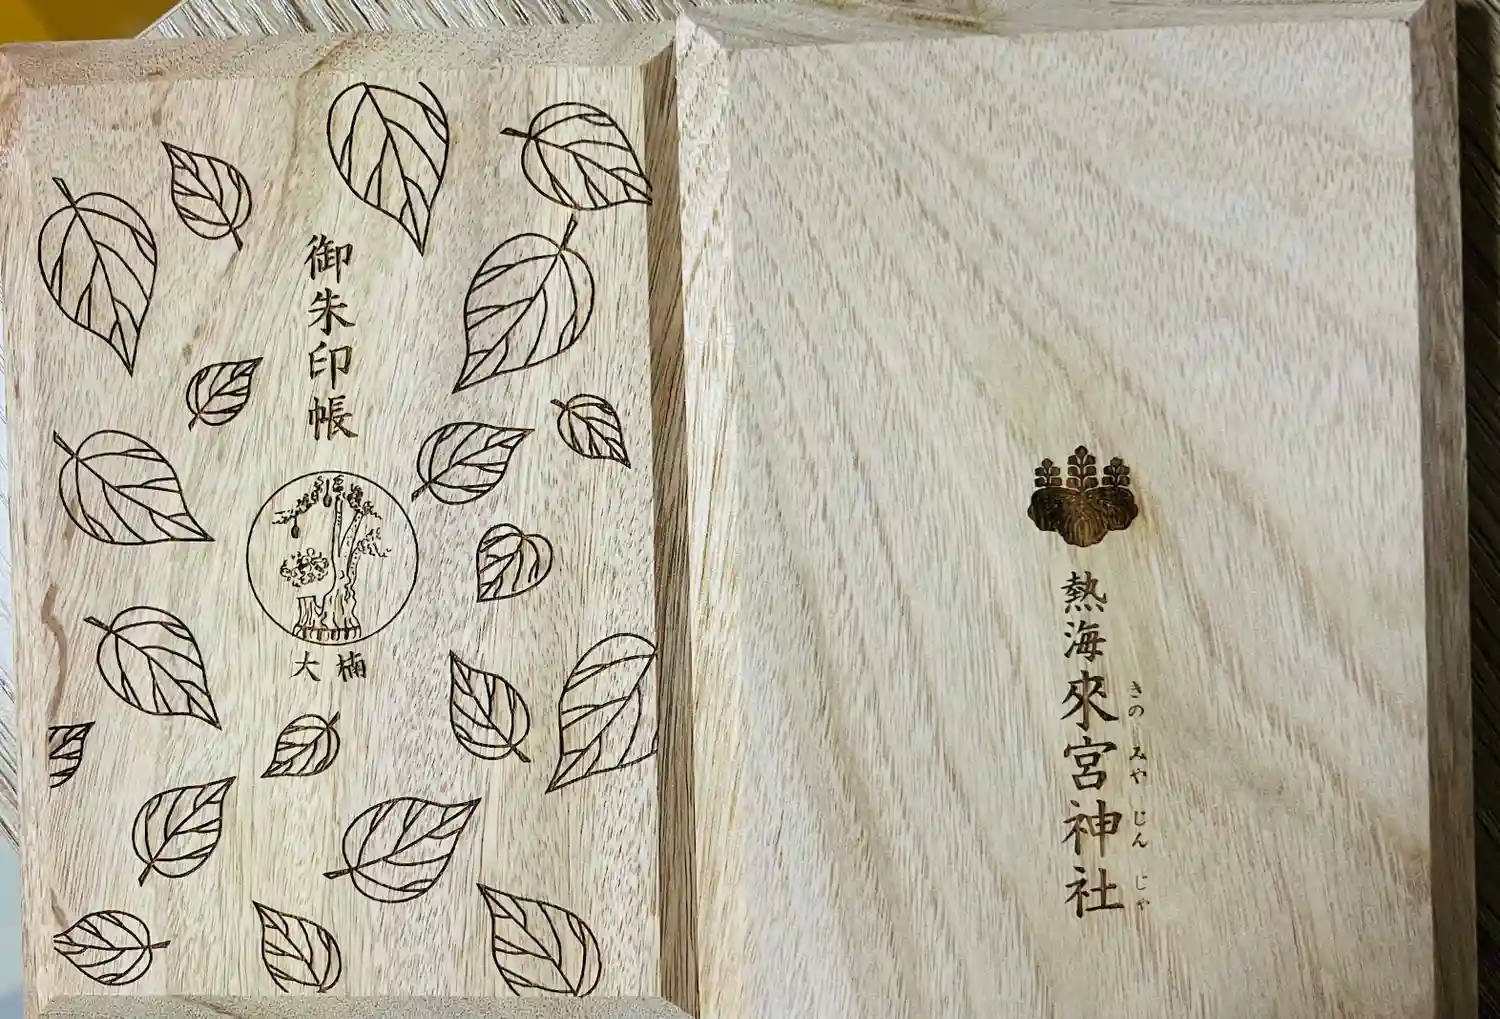 御朱印帳
大楠
熱海來宮神社
きのみやじんじゃ